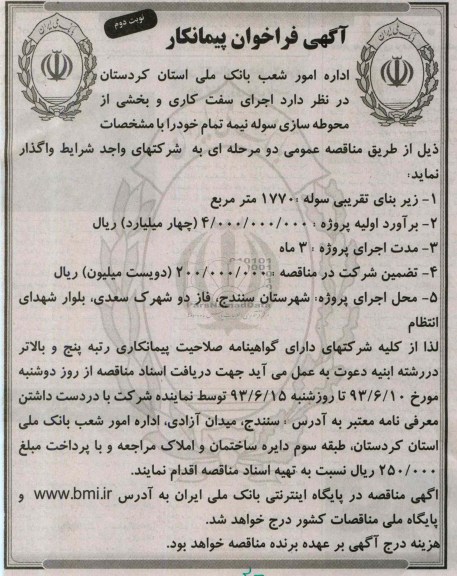 نوبت دوم
آگهی فراخوان پیمانکار
اداره امور شعب بانک ملی استان کردستان
در نظر دارد اجرای سفت کاری و بخشی از
محوطه سازی سوله نیمه تمام خودرا با مشخصات
ذیل از طریق مناقصه عمومی دو مرحله ای به شرکتهای واجد شرایط واگذار
نماید:
۱- زیر بنای تقریبی سوله :۱۷۷۰ متر مربع
۲- برآورد اولیه پروژه : ۴/۰۰۰/۰۰۰/۰۰۰ (چهار میلیارد) ریال
۳- مدت اجرای پروژه : ۳ ماه
۴- تضمین شرکت در مناقصه :۲۰۰/۰۰۰/۰۰۰ (دویست میلیون) ریال
۵- محل اجرای پروژه: شهرستان سنندج، فاز دو شهرک سعدی، بلوار شهدای
انتظام
لذا از کلیه شرکتهای دارای گواهینامه صلاحیت پیمانکاری رتبه پنج و بالاتر
دررشته ابنیه دعوت به عمل می آید جهت دریافت اسناد مناقصه از روز دوشنبه
مورخ ۹۳/۶/۱۰ تا روزشنبه ۹۳/۶/۱۵ توسط نماینده شرکت با دردست داشتن
معرفی نامه معتبر به آدرس : سنندج، میدان آزادی، اداره امور شعب بانک ملی
استان کردستان، طبقه سوم دایره ساختمان و املاک مراجعه و با پرداخت مبلغ
۲۵۰/۰۰۰ ریال نسبت به تهیه اسناد مناقصه اقدام نمایند.
آگهی مناقصه در پایگاه اینترنتی بانک ملی ایران به آدرس www.bmi.ir و
پایگاه ملی مناقصات کشور درج خواهد شد.
هزینه درج آگهی بر عهده برنده مناقصه خواهد بود.